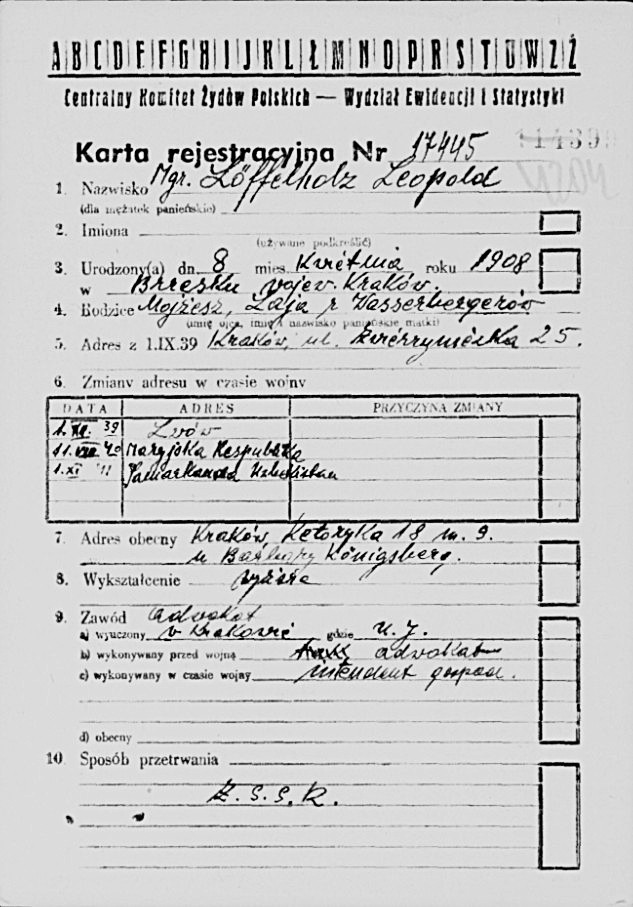 A B C D E F G H I J K L Ł M N O P R S T U W Z Ź
Centralny Komitet Żydów Polskich — Wydział Ewidencji i Statystyki
Karta rejestracyjna Nr 17445
1. Nazwisko Mgr. Löffelholz Leopold
(dla mężatek panieńskie)
2. Imiona
(używane podkreślić)
3. Urodzony(a) dn. 8 mies. Kwietnia roku 1908
w Brzesku wojew. Kraków.
4. Rodzice Mojżesz, Laja z Wasserbergerów
(imię ojca, imię i nazwisko panieńskie matki)
5. Adres z 1.IX.39 Kraków, ul. Zwierzyniecka 25.
6. Zmiany adresu w czasie wojny
DATA ADRES PRZYCZYNA ZMIANY
39 Lwów
11. 40 Maryjska Republika
1.XI Samarkanda Uzbekistan
7. Adres obecny Kraków, Retoryka 18 m. 9.
u Barbary Königsberg.
8. Wykształcenie wyższe
9. Zawód adwokat
a) wyuczony w Krakowie gdzie U. J.
b) wykonywany przed wojną adwokat
c) wykonywany w czasie wojny intendent gospod.
d) obecny
10. Sposób przetrwania
Z.S.S.R.